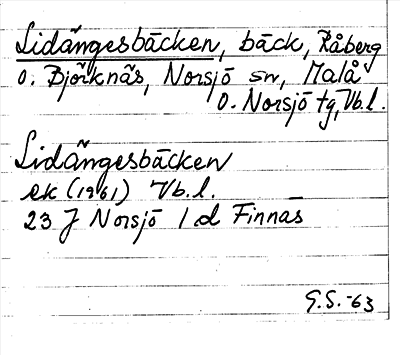 Lidängesbäcken, bäck, Råberg
o. Björknäs, Norsjö sn, Malå
o. Norsjö tg, Vb.l.
Lidängesbäcken
ek (1961) Vb.l.
23 J Norsjö 1 d Finnäs
G.S. -63